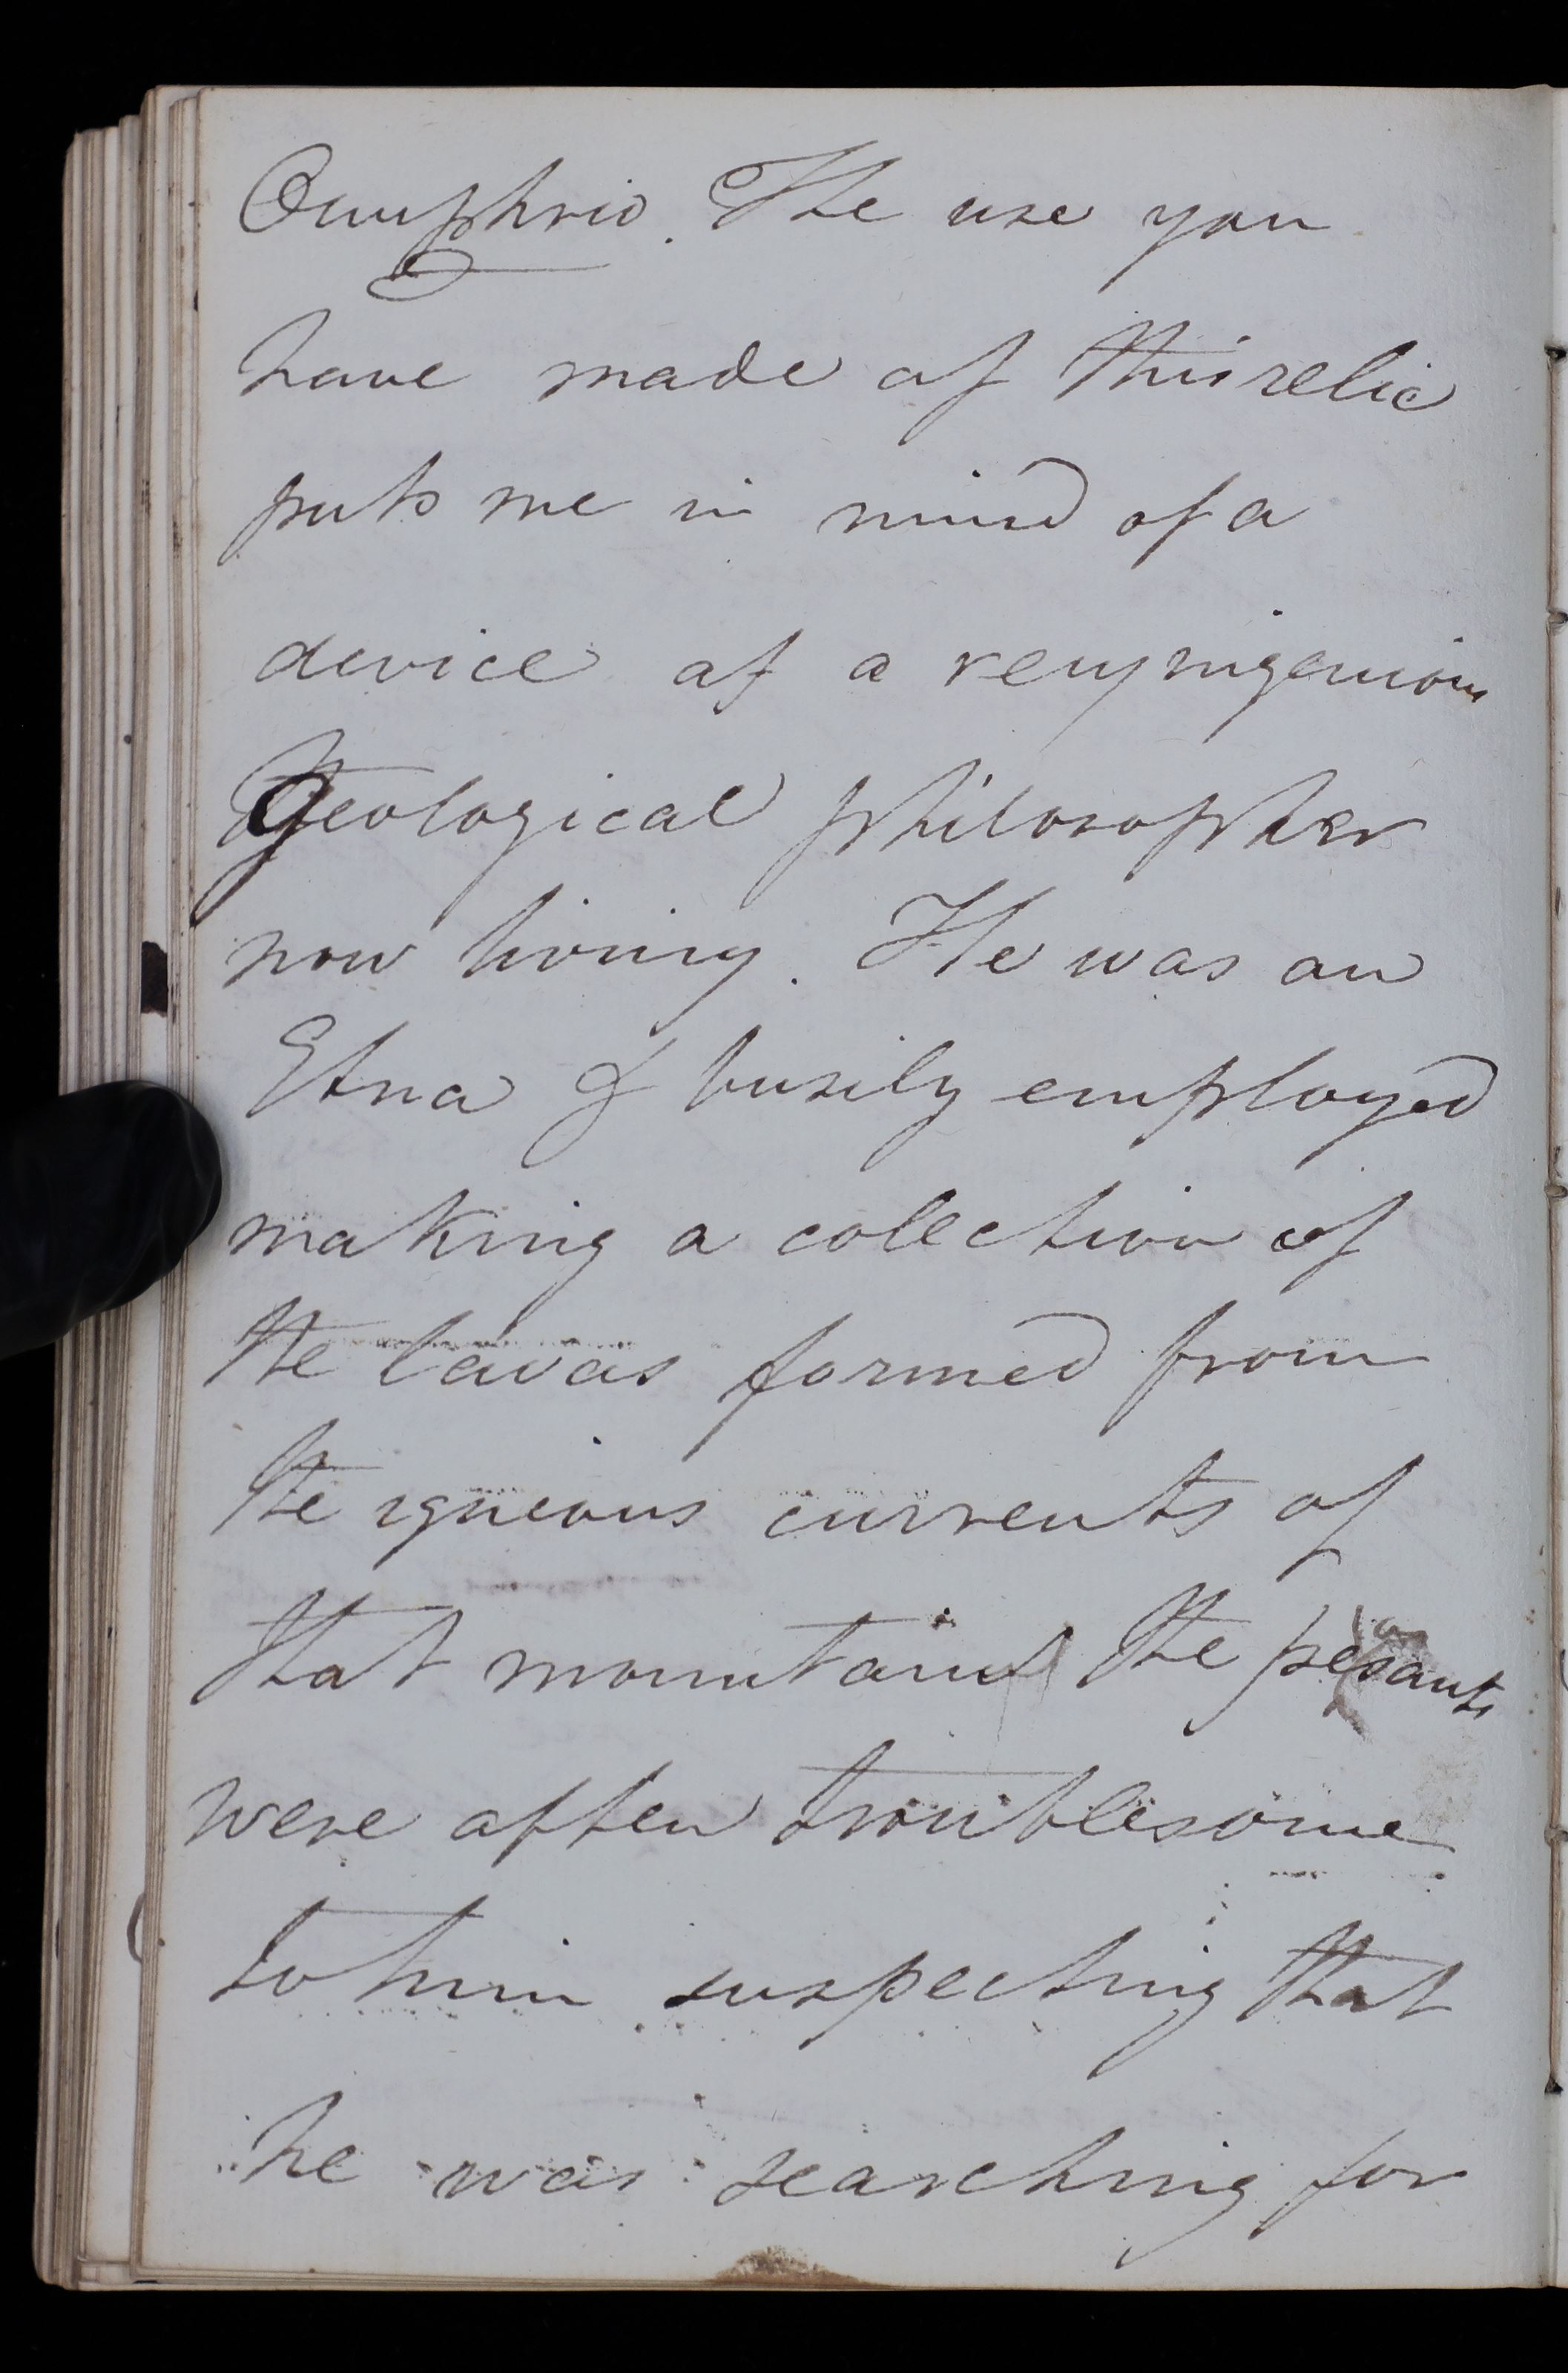 Onuphrio. The use you
have made of this relic
puts me in mind of a
device of a very ingenious
Geological philosopher
now living. He was on
Etna & busily employed
making a collection of
the lavas formed from
the igneous currents of
that mountain the pesants
were often troublesome
to him suspecting that
he was searching for